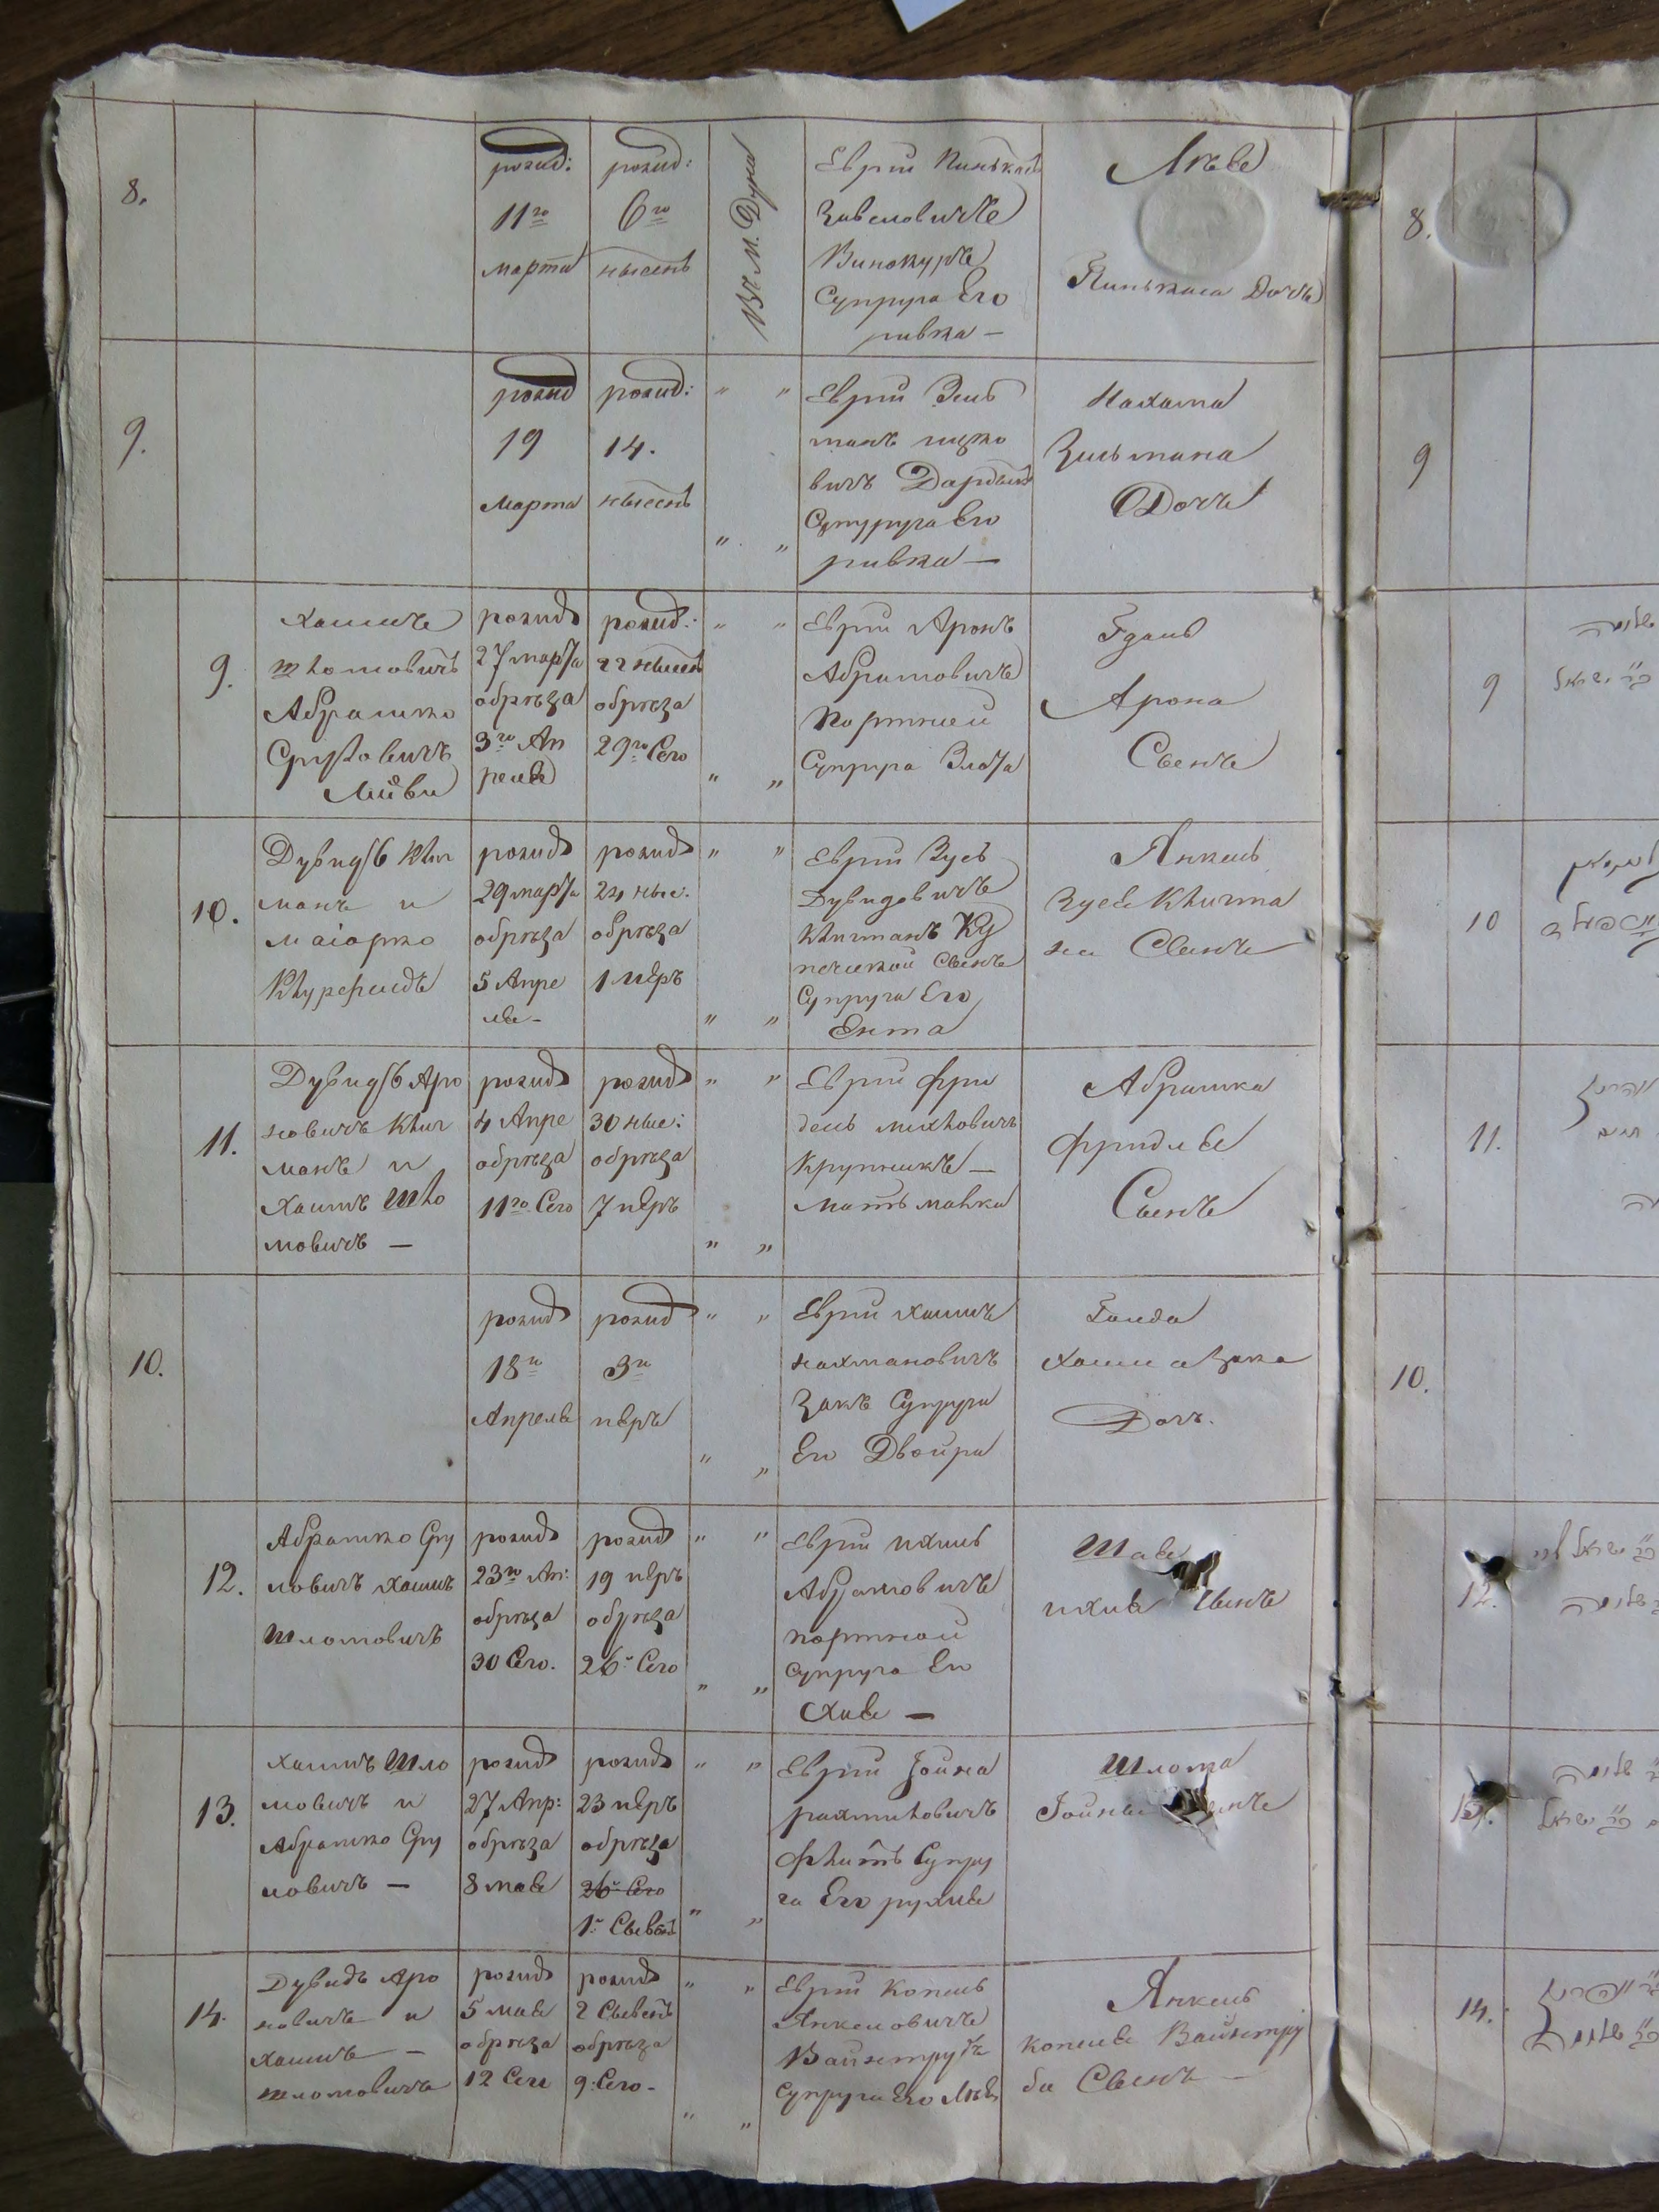 8.
рожид:
11го
марта
рожид:
6го
нысень
Въ М. Дун
Еврей Пинькас
Завеловичъ
Винокуръ
Супруга Его
ривка —
Лѣе
Пинькаса Дочь
9.
рожид
19
марта
рожид:
14.
нысень
" "
" "
Еврей Зель
манъ ицко
вичъ
Супруга Его
ривка —
Нахама
Зельмана
Дочь
9.
Хаимъ
шломовичъ
Абрамко
Сруловичъ
Лийви
рожид
27 марта
обрѣза
3го Ап
реля
рожид:
22 нысень
обрѣза
29го Сего
" "
" "
Еврей Аронъ
Абрамовичъ
Портной
Супруга Злота
Гдаль
Арона
Сынъ
10.
Дувидъ Клиг
манъ и
маіорко
рожид
29 марта
обрѣза
5 Апре
ля —
рожид
24 ныс:
обрѣза
1 иеръ
" "
" "
Еврей Зусь
Дувидовичъ
Клигманъ Ку
печеской Сынъ
Супруга Его
Ента
Янкель
Зуся Клигма
на Сынъ
11.
Дувидъ Аро
новичъ Клиг
манъ и
Хаимъ Шло
мовичъ —
рожид
4 Апре
обрѣза
11го Сего
рожид
30 ныс:
обрѣза
7 иеръ
" "
" "
Еврей Фри
дель
Крупникъ —
Мать малка
Абрамка
Фриделя
Сынъ
10.
рожид
18го
Апреля
рожид
3го
иеръ
" "
" "
Еврей Хаимъ
нахмановичъ
Закъ Супруга
Его Двойра
Голда
Хаима Зака
Дочь.
12.
Абрамко Сру
ловичъ Хаимъ
Шломовичъ
рожид
23го Ап:
обрѣза
30 Сего.
рожид
19 иеръ
обрѣза
26го Сего
" "
" "
Еврей ихиль
Абрамовичъ
портной
Супруга Его
Хая —
Шая
ихиля Сынъ
13.
Хаимъ Шло
мовичъ и
Абрамко Сру
ловичъ —
рожид
27 Апр:
обрѣза
8 мая
рожид
23 иеръ
обрѣза
26го Сего
1го Сывень
" "
" "
Еврей Іойна
рахмиловичъ
Супру
га Его рухля
Шлома
Іойны Сынъ
14.
Дувидъ Аро
новичъ и
Хаимъ —
шломовичъ
рожид
5 мая
обрѣза
12 Сего
рожид
2 Сывень
обрѣза
9: Сего —
" "
" "
Еврей Копель
Янкеловичъ
Вайнтрубъ
Супруга Его Лѣя
Янкель
Копеля Вайнтру
ба Сынъ —
8.
9
9
שלומה
בר׳ ישראל
10
11.
10.
12.
שלומה
13.
שלומה
ישראל
14.